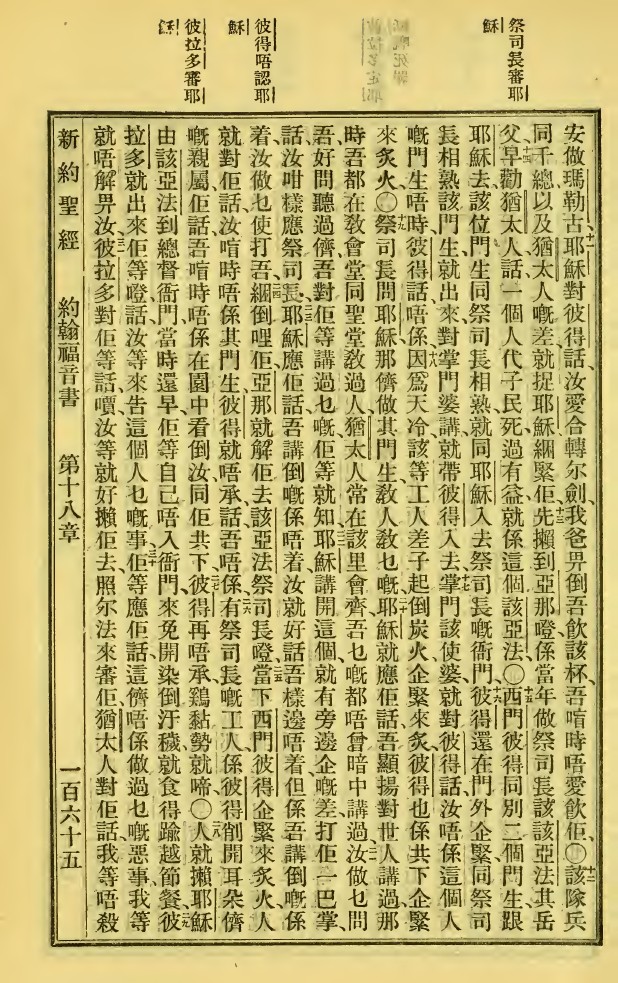 祭司長審耶
穌
彼得唔認耶
穌
彼拉多審耶
穌
安做瑪勒古、十一耶穌對彼得話汝愛合轉尔劍、我爸畀倒吾飲該杯、吾喧時唔愛飲佢、〇十二該隊兵
同千總以及猶太人嘅差就捉耶穌綑緊佢、十三先攋到亞那嶝係當年做祭司長該該亞法其岳
父、十四早勸猶太人話一個人代子民死過有益就係這個該亞法、〇十五西門彼得同別二個門生跟
耶穌去該位門生同祭司長相熟就同耶穌入去祭司長嘅衙門、十六彼得還在門外企緊同祭司
長相熟該門生就出來對掌門婆講就帶彼得入去、十七掌門該使婆就對彼得話汝唔係這個人
嘅門生唔時、彼得話唔係、十八因爲天冷該等工人差子起倒炭火企緊來炙彼得也係共下企緊
來炙火、〇十九祭司長問耶穌那儕做其門生、教人教乜嘅、二十耶穌就應佢話吾顯揚對世人講過、那
時吾都在教會堂同聖堂教過人、猶太人常在該里會齊、吾乜嘅都唔曾暗中講過、二一汝做乜問
吾好問聽過儕吾對佢等講過乜嘅佢等就知、二二耶穌講開這個、就有旁邊企嘅差打佢一巴掌、
話汝咁樣應祭司長、二三耶穌應佢話吾講倒嘅係唔着汝就好話吾樣邊唔着但係吾講倒嘅係
着汝做乜使打吾、二四綑倒哩佢、亞那就解佢去該亞法祭司長嶝、二五當下西門彼得企緊來炙火、人
就對佢話、汝喧時唔係其門生、彼得就唔承話吾唔係、二六有祭司長嘅工人、係彼得削開耳朶儕
嘅親屬佢話吾喧時唔係在園中看倒汝同佢共下、二七彼得再唔承、鷄黏勢就啼、〇二八人就攋耶穌
由該亞法到總督衙門、當時還早、佢等自己唔入衙門來免開染倒汙穢、就食得踰越節餐、二九彼
拉多就出來佢等嶝話汝等來告這個人乜嘅事、三十佢等應佢話這儕唔係做過乜嘅惡事我等
就唔解畀汝、三一彼拉多對佢等話嘪汝等就好攋佢去、照尔法來審佢、猶太人對佢話、我等唔殺
新約聖經 約翰福音書 第十八章 一百六十五